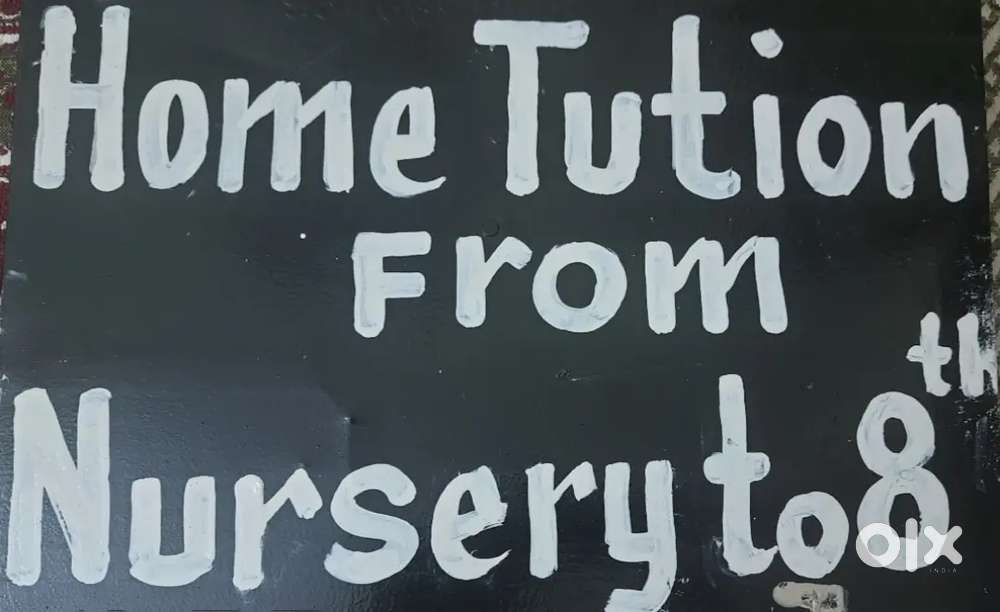 Home Tution
From
Nursery to 8th
olx
INDIA